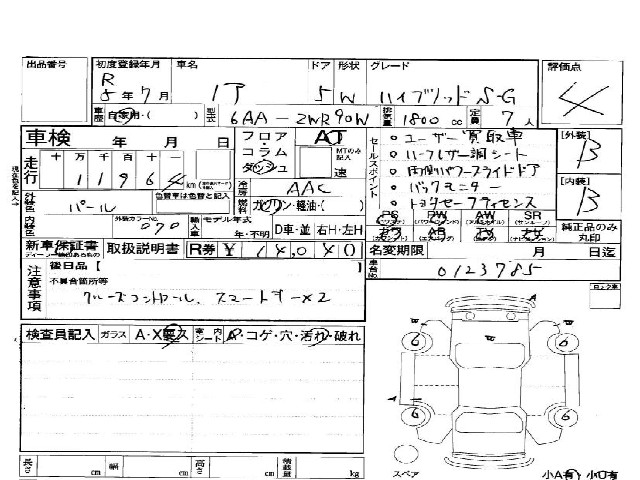 出品番号 初度登録年月 車名 ドア 形状 グレード 評価点
R 5年7月 5 W ハイブリッド S-G 4
車歴 自家用・( ) 型式 6AA-ZWR90W 排気量 1800 cc 定員 7人
車検 年 月 日 フロア・コラム・ダッシュ AT MTのみ記入 速
走行 十万千百十一 11964 km
セールスポイント
ユーザー買取車
ハーフレザー調シート
両側パワースライドドア
バックモニター
トヨタセーフティセンス
[外装] B
[内装] B
冷房 AAC
外装色 パール 色替車は色替と記入 燃料 ガソリン・軽油・( )
内装色 外装カラーNo. 070 輸入車 モデル年式 年・不明 D車・並 右H・左H
PS PW AW SR
純正品のみ丸印
新車保証書 取扱説明書 R券 ¥ 14,040 名変期限 月 日迄
車台No. 0123785
注意事項 後日品 [ ]
不具合箇所等
クルーズコントロール、スマートキー×2
検査員記入 ガラス A・X要欠 室内シート A・コゲ・穴・汚れ・破れ
長さ cm 幅 cm 高さ cm 積載量 kg
6 6 6 6
A
スペア 小A有 小U有